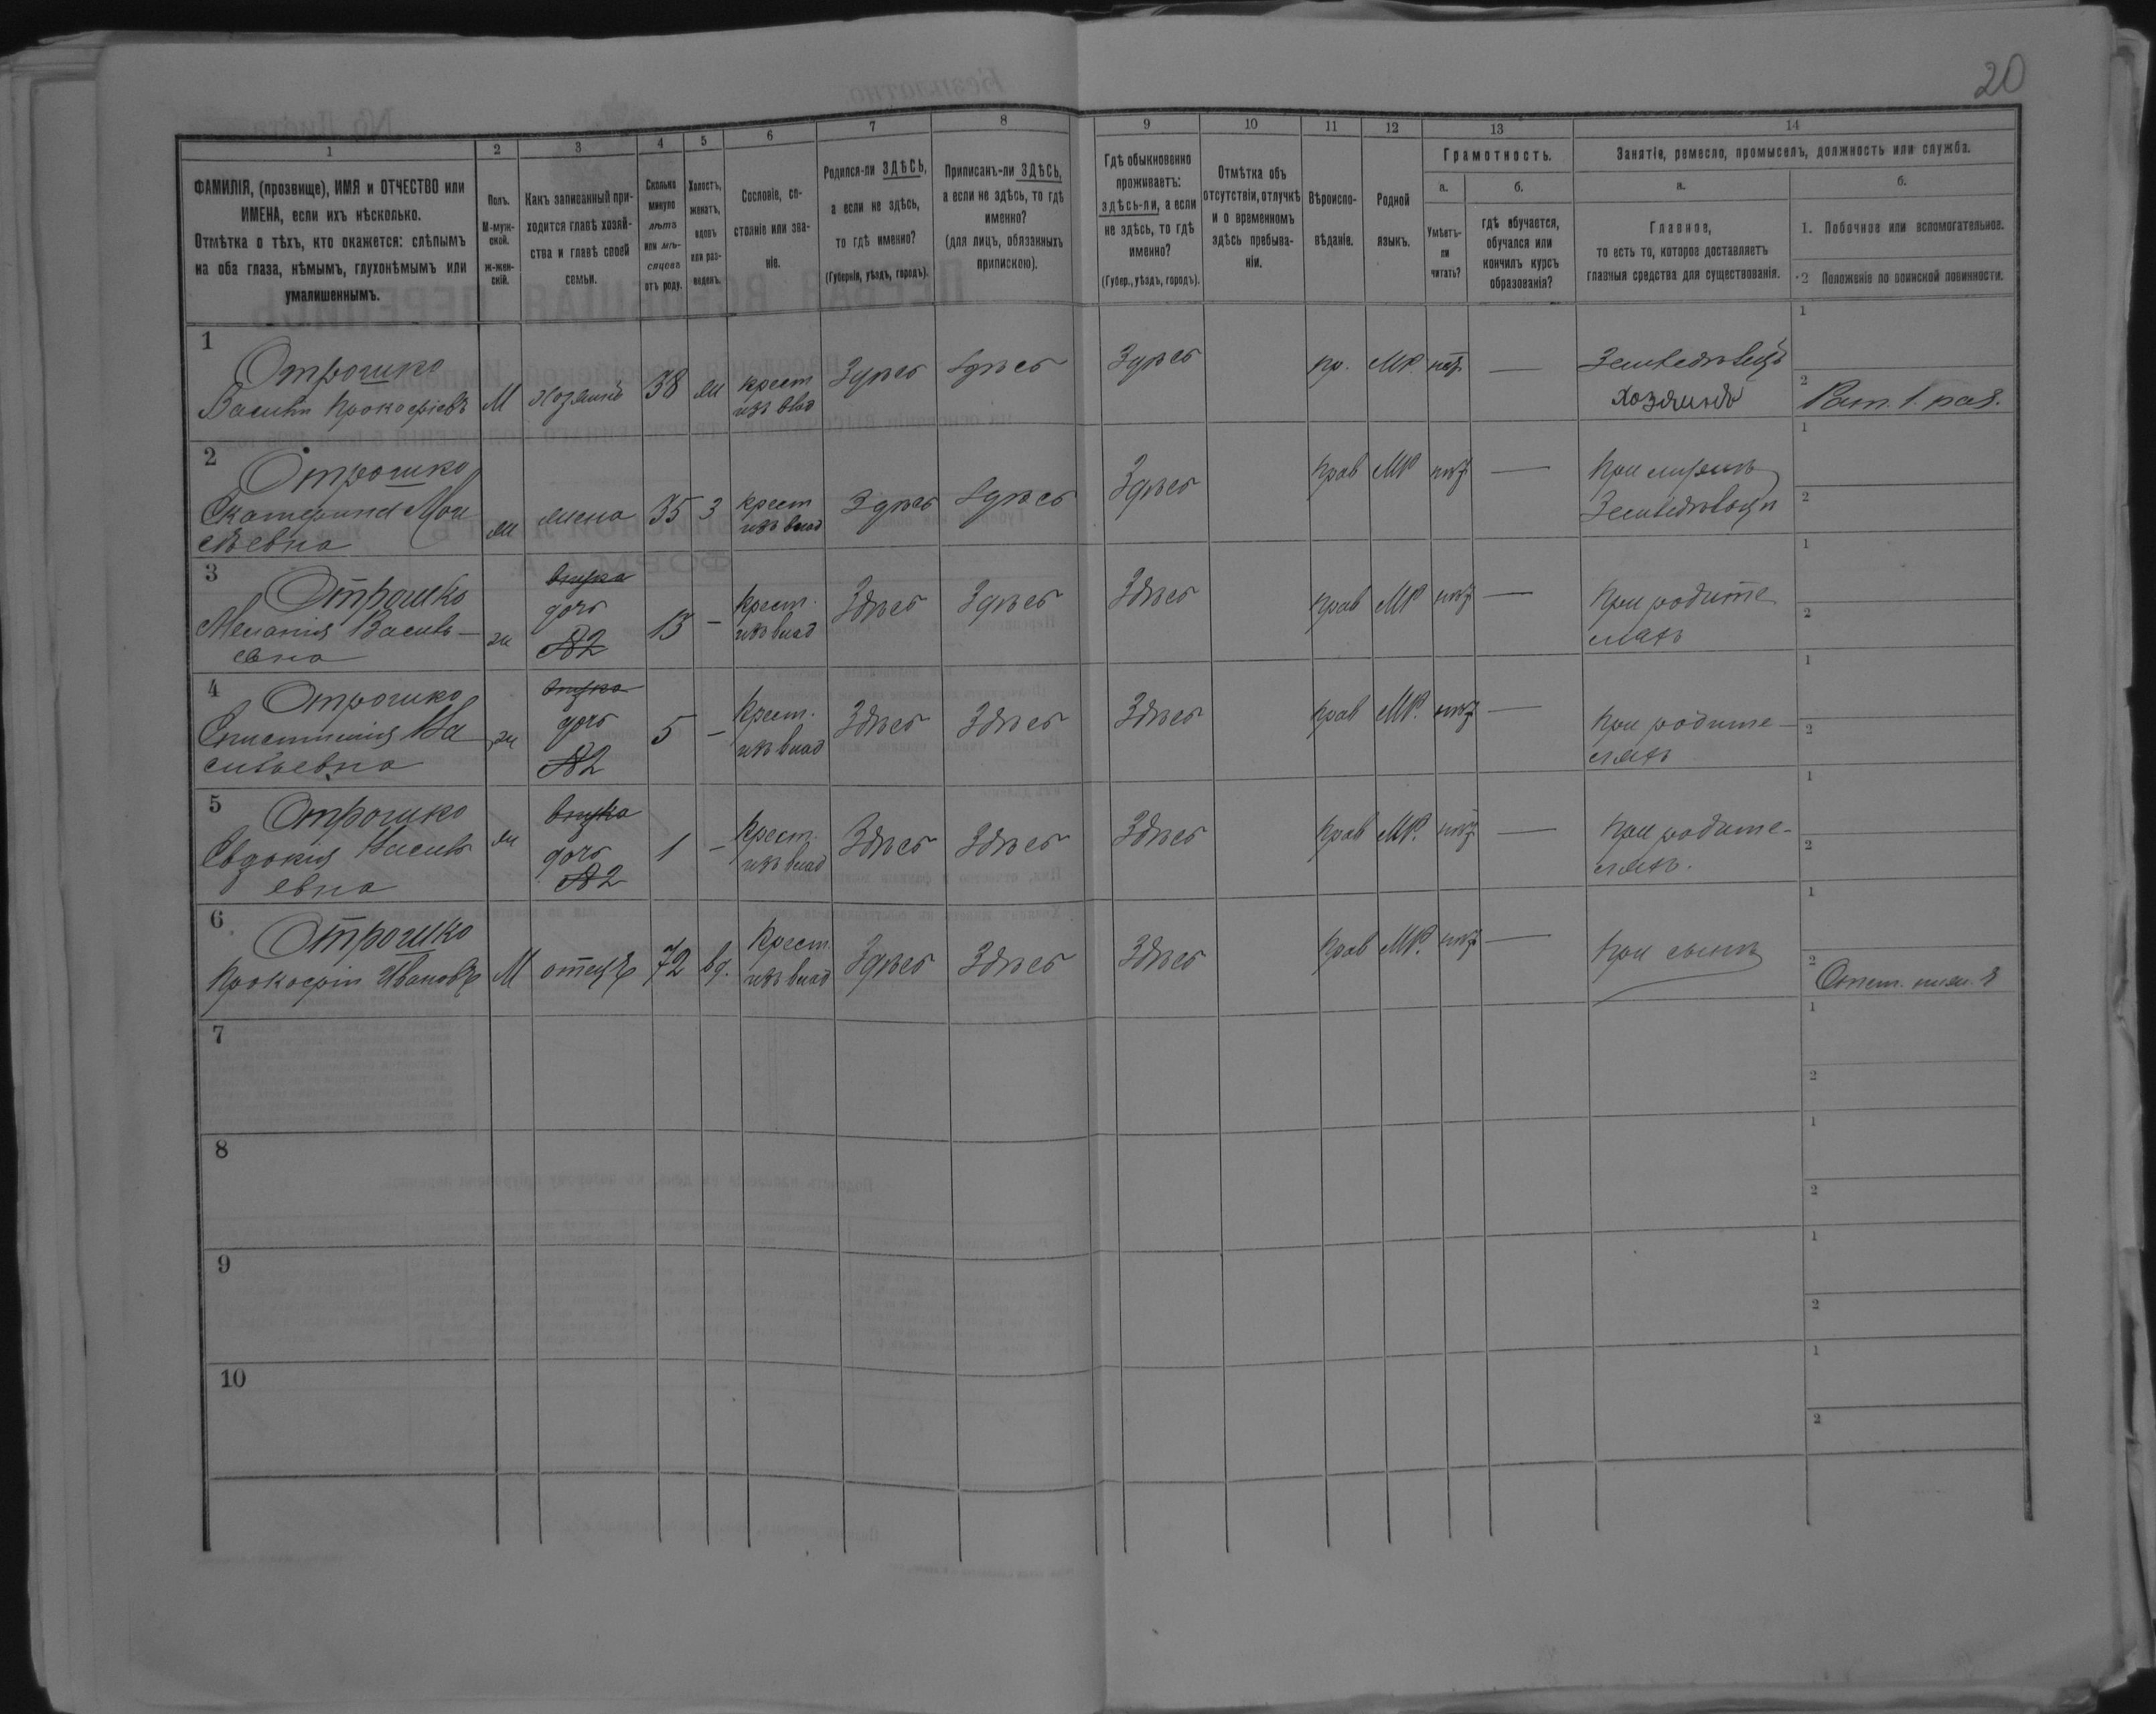 20
1 2 3 4 5 6 7 8 9 10 11 12 13 14
ФАМИЛІЯ, (прозвище), ИМЯ и ОТЧЕСТВО или
ИМЕНА, если ихъ нѣсколько.
Отмѣтка о тѣхъ, кто окажется: слѣпымъ
на оба глаза, нѣмымъ, глухонѣмымъ или
умалишеннымъ.
Полъ.
М-муж-
ской.
Ж-жен-
скій.
Какъ записанный при-
ходится главѣ хозяй-
ства и главѣ своей
семьи.
Сколько
минуло
лѣтъ
или мѣ-
сяцевъ
отъ роду.
Холостъ,
женатъ,
вдовъ
или раз-
веденъ.
Сословіе, со-
стояніе или зва-
ніе.
Родился-ли ЗДѢСЬ,
а если не здѣсь,
то гдѣ именно?
(Губернія, уѣздъ, городъ).
Приписанъ-ли ЗДѢСЬ,
а если не здѣсь, то гдѣ
именно?
(для лицъ, обязанныхъ
припискою).
Гдѣ обыкновенно
проживаетъ:
здѣсь-ли, а если
не здѣсь, то гдѣ
именно?
(Губер., уѣздъ, городъ).
Отмѣтка объ
отсутствіи, отлучкѣ
и о временномъ
здѣсь пребыва-
ніи.
Вѣроиспо-
вѣданіе.
Родной
языкъ.
Грамотность.
а.
Умѣетъ-
ли
читать?
б.
гдѣ обучается,
обучался или
кончилъ курсъ
образованія?
Занятіе, ремесло, промыселъ, должность или служба.
а.
Главное,
то есть то, которое доставляетъ
главныя средства для существованія.
б.
1. Побочное или вспомогательное.
2 Положеніе по воинской повинности.
1
Отрошко
Василій Прокофіевъ М хозяинъ 38 ж крест
изъ влад Здѣсь Здѣсь Здѣсь пр. МР. нѣт — Земледѣлецъ
хозяинъ
1
2 Рат. 1. раз.
2
Отрошко
Екатерина Мои
сѣевна ж жена 35 З крест
изъ влад Здѣсь Здѣсь Здѣсь прав МР нѣт — При мужѣ
1
2
3
Отрошко
Меланія Василь-
евна ж внучка
дочь
№2 13 — крест.
изъ влад Здѣсь Здѣсь Здѣсь прав МР нѣт — При родите
ляхъ
1
2
4
Отрошко
Ва
сильевна ж внучка
дочь
№2 5 — крест.
изъ влад Здѣсь Здѣсь Здѣсь прав МР. нѣт — При родите-
ляхъ
1
2
5
Отрошко
Евдокія Василь
евна ж внучка
дочь
№2 1 — крест.
изъ влад Здѣсь Здѣсь Здѣсь прав МР. нѣт — При родите-
ляхъ.
1
2
6
Отрошко
Прокофій Ивановъ М отецъ 72 вд. Крест
изъ влад Здѣсь Здѣсь Здѣсь прав МР. нѣт — При сынѣ
1
2
7
1
2
8
1
2
9
1
2
10
1
2